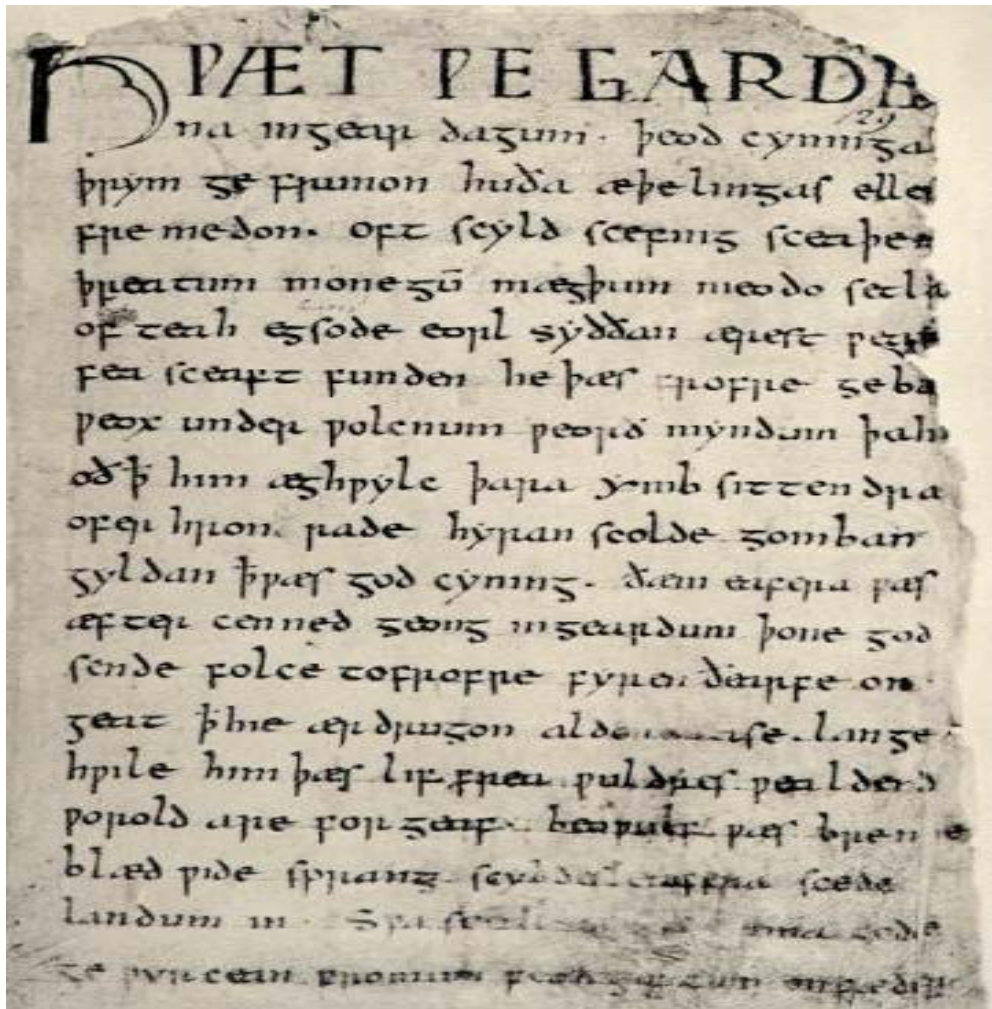 HǷÆT ǷE GARDE
129
na ingear dagum. þeod cyninga
þrym ge frunon huða æþelingas elle
fre medon. oft scyld scefing sceaþe
þreatum monegū mægþum meodo setla
of teah egsode eorl syððan ærest ƿear
fea sceaft funden he þæs frofre geba
ƿeox under ƿolcnum ƿeorð myndum þah
oð ꝥ him æghƿylc þara ymb sittendra
ofer hron rade hyran scolde gomban
gyldan ꝥ ƿæs god cyning. ðæm eafera ƿæs
æfter cenned geong ingeardum þone god
sende folce tofrofre fyren ðearfe on
geat ꝥ hie ær drugon aldor ase. lange
hƿile him þæs lif frea ƿuldres ƿealdend
ƿorold are for geaf. beoƿulf ƿæs breme
blæd ƿide sprang scyldes eafera scede
landum in. Sƿa sceal guma gode
ge ƿyrcean fromum feoh giftum onfæder